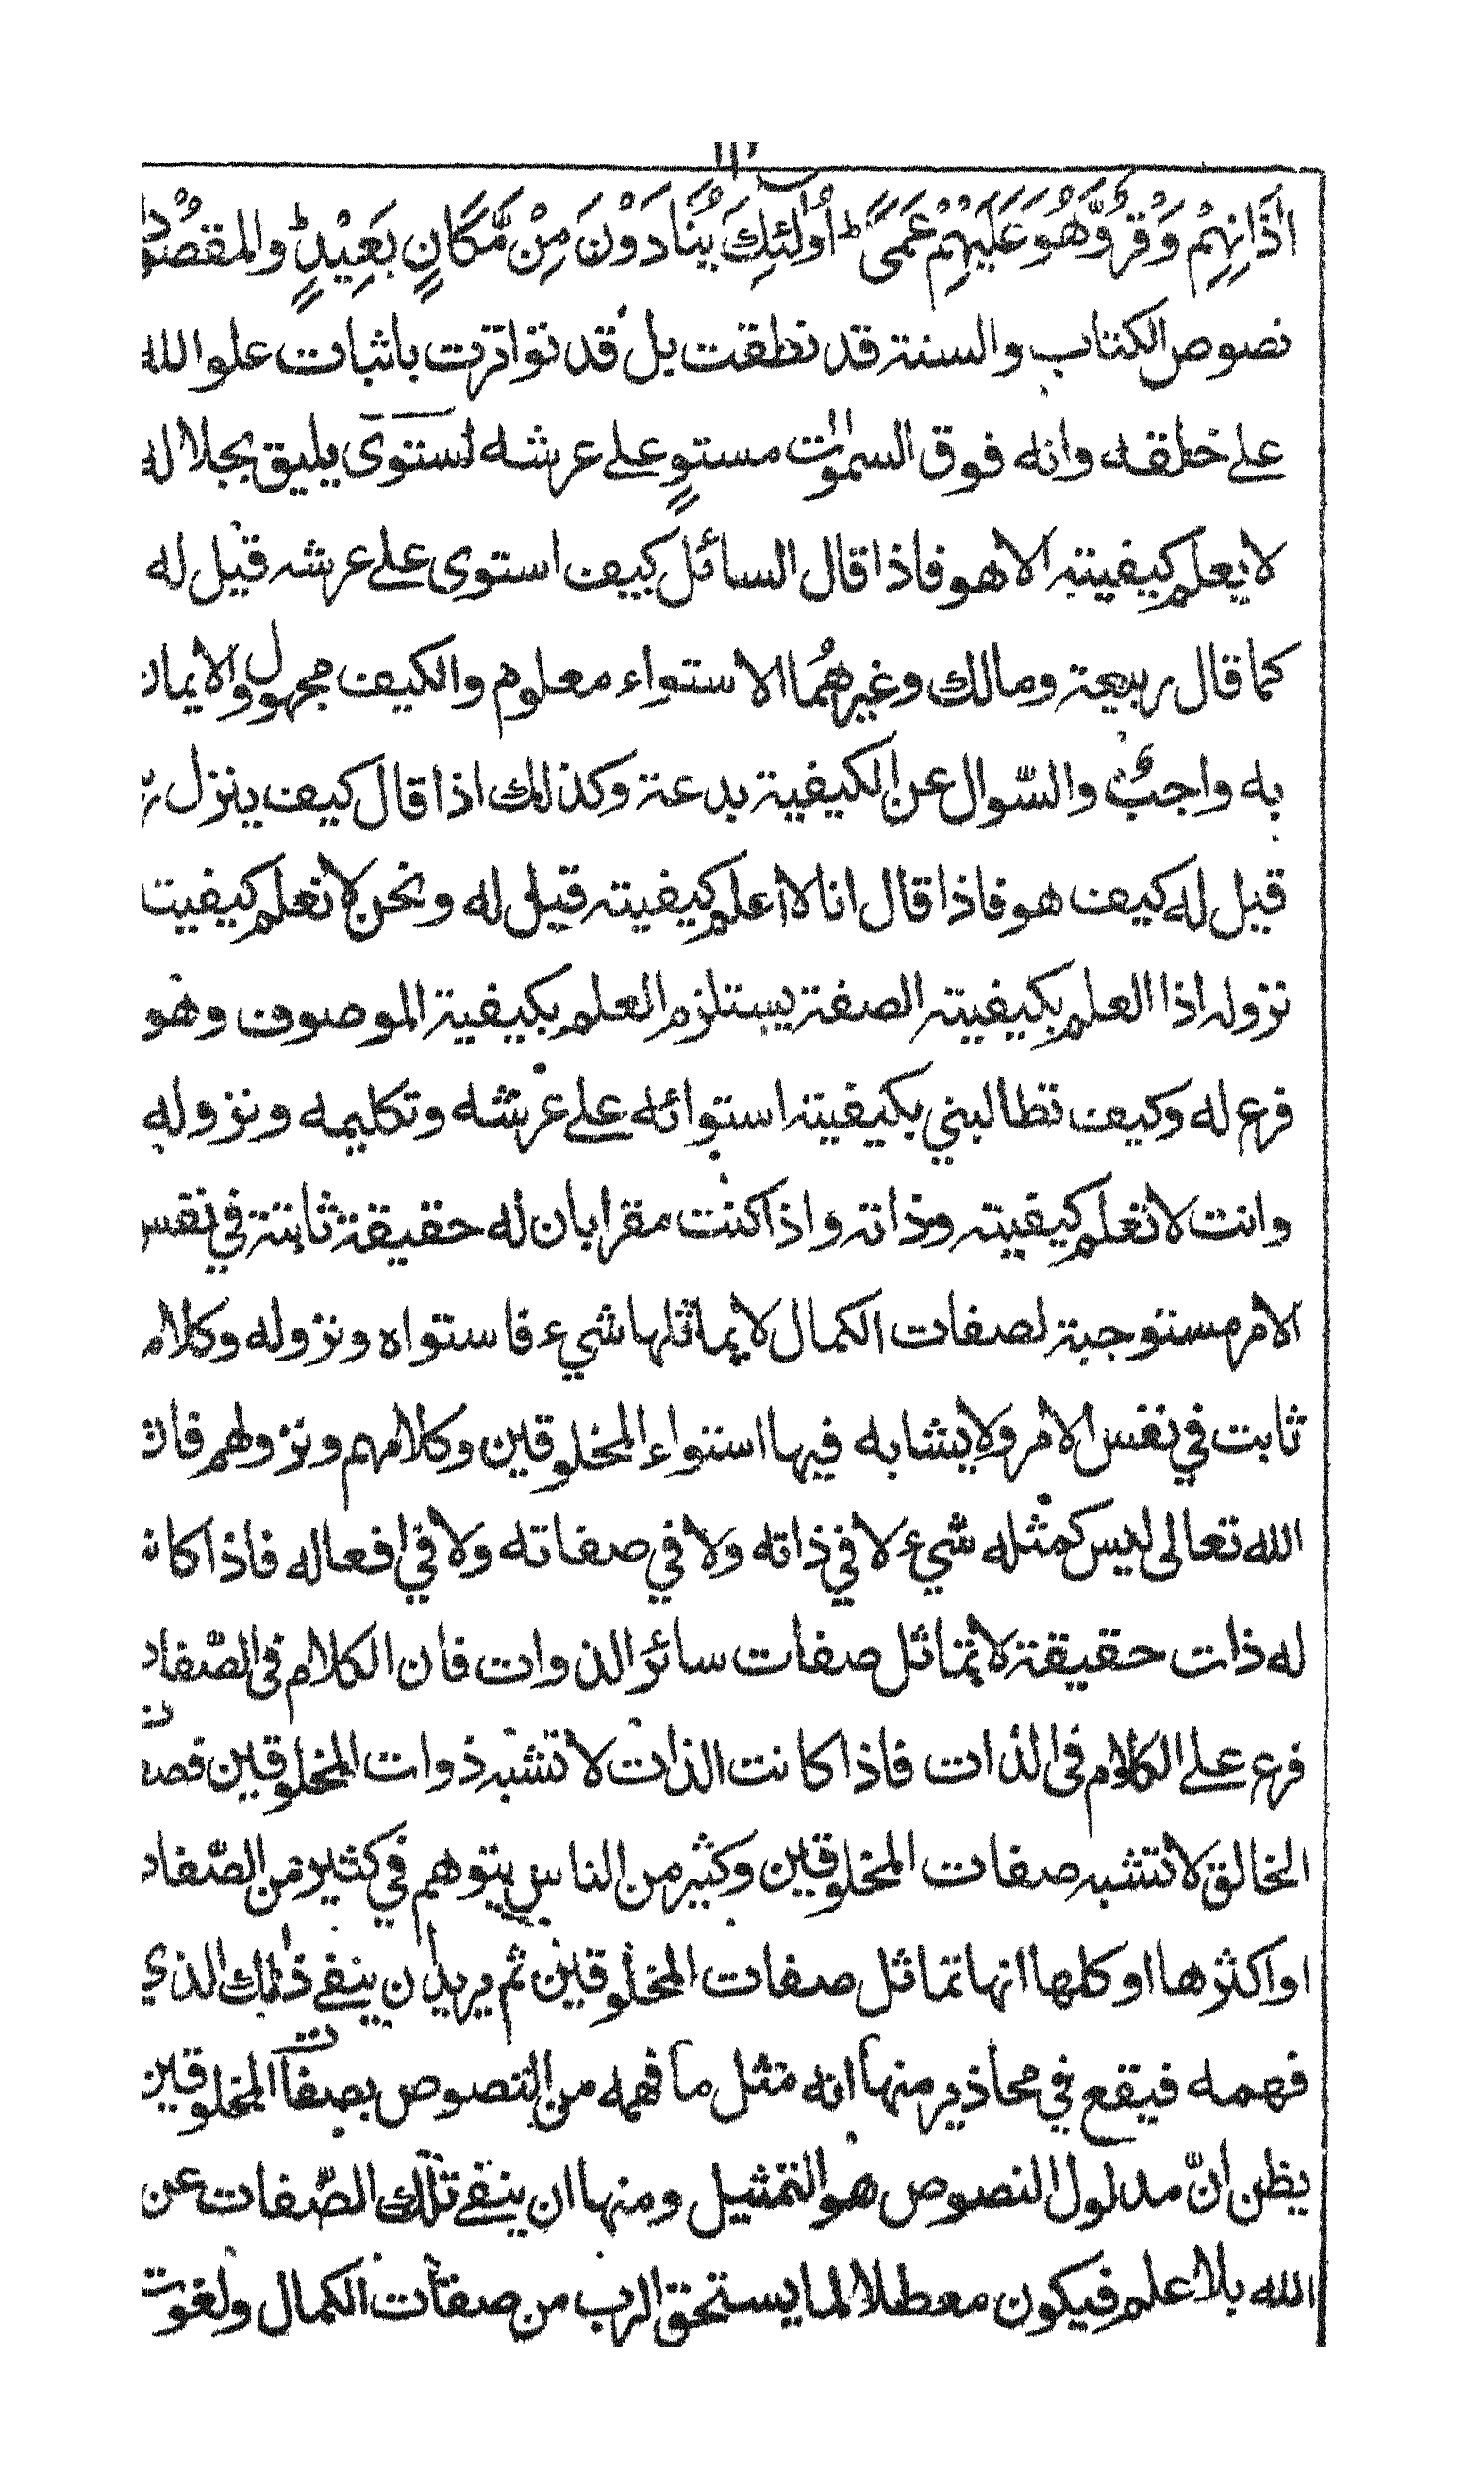 اٰذَانِهِمْ وَقْرٌ وَّهُوَ عَلَيْهِمْ عَمًى ؕ اُولٰٓئِكَ يُنَادَوْنَ مِنْ مَّكَانٍ بَعِيْدٍ ؕ والمقصود
نصوص الكتاب والسنة قد نطقت بل قد تواترت باثبات علو الله
على خلقه وانه فوق السمٰوٰت مستوٍ على عرشه استوى يليق بجلاله
لا يعلم كيفيته الا هو فاذا قال السائل كيف استوى على عرشه قيل له
كما قال ربيعة ومالك وغيرهُما الاستواء معلوم والكيف مجهول والايمان
به واجبٌ والسّوال عن الكيفية بدعة وكذلك اذا قال كيف ينزل
قيل له كيف هو فاذا قال انا لا اعلم كيفيته قيل له ونحن لا نعلم كيفيت
نزوله اذا العلم بكيفيته الصفة يستلزم العلم بكيفية الموصوف وهو
فرع له وكيف تطالبني بكيفيتة استوائه على عرشه وتكليمه ونزوله
وانت لا تعلم كيفيته وذاته واذا كنت مقرا بان له حقيقة ثابتة في نفس
الامر مستوجبة لصفات الكمال لا يماثلها شيء فاستواه ونزوله وكلام
ثابت في نفس الامر ولا يشابه فيها استواء المخلوقين وكلامهم ونزولهم فان
الله تعالى ليس كمثله شيء لا في ذاته ولا في صفاته ولا في افعاله فاذا كان
له ذات حقيقة لا تماثل صفات سائر الذوات فان الكلام فى الصّفات
فرع على الكلام فى الذات فاذا كانت الذات لا تشبه ذوات المخلوقين فصفات
الخالق لا تشبه صفات المخلوقين وكثير من الناس يتوهم في كثير من الصّفات
او اكثرها او كلها انها تماثل صفات المخلوقين ثم يريد ان ينفي ذلك الذي
فهمه فيقع في محاذير منها انه مثل ما فهمه من النصوص بصفات المخلوقين
يظن انّ مدلول النصوص هو التمثيل ومنها ان ينفي تلك الصّفات عن
الله بلا علم فيكون معطلا لما يستحق الرب من صفات الكمال ولغوت